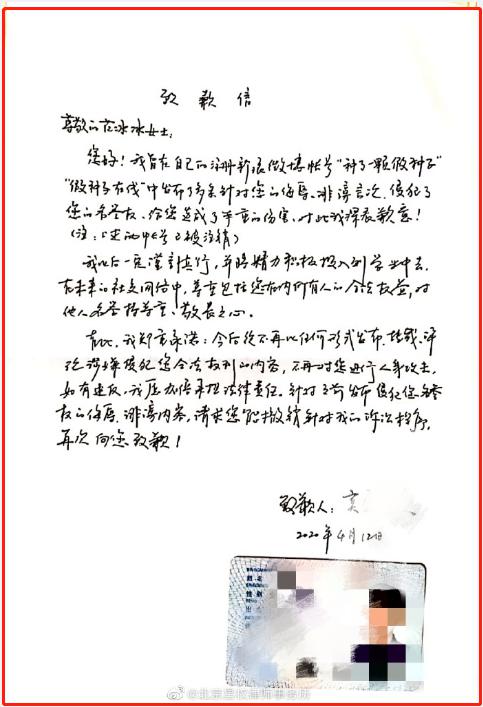 致歉信
尊敬的范冰冰女士：
您好！我曾在自己的注册新浪微博帐号“种了一颗假种子”
“假种子在线”中发布了多条针对您的侮辱、诽谤言论，侵犯了
您的名誉权，给您造成了严重的伤害，对此我深表歉意！
（注：上述的帐号已被注销）
我以后一定谨言慎行，并将精力积极投入到学业中去。
在未来的社交网络中，尊重包括您在内所有人的合法权益，对
他人名誉持尊重、敬畏之心。
在此，我郑重承诺：今后绝不再以任何形式发布、转载、评
论涉嫌侵犯您合法权利的内容，不再对您进行人身攻击，
如有违反，我愿加倍承担法律责任。针对之前发布侵犯您名誉
权的侮辱、诽谤内容，请求您能撤销针对我的诉讼程序，
再次向您致歉！
致歉人：
2020年4月12日
姓名
性别
出
@北京星权律师事务所